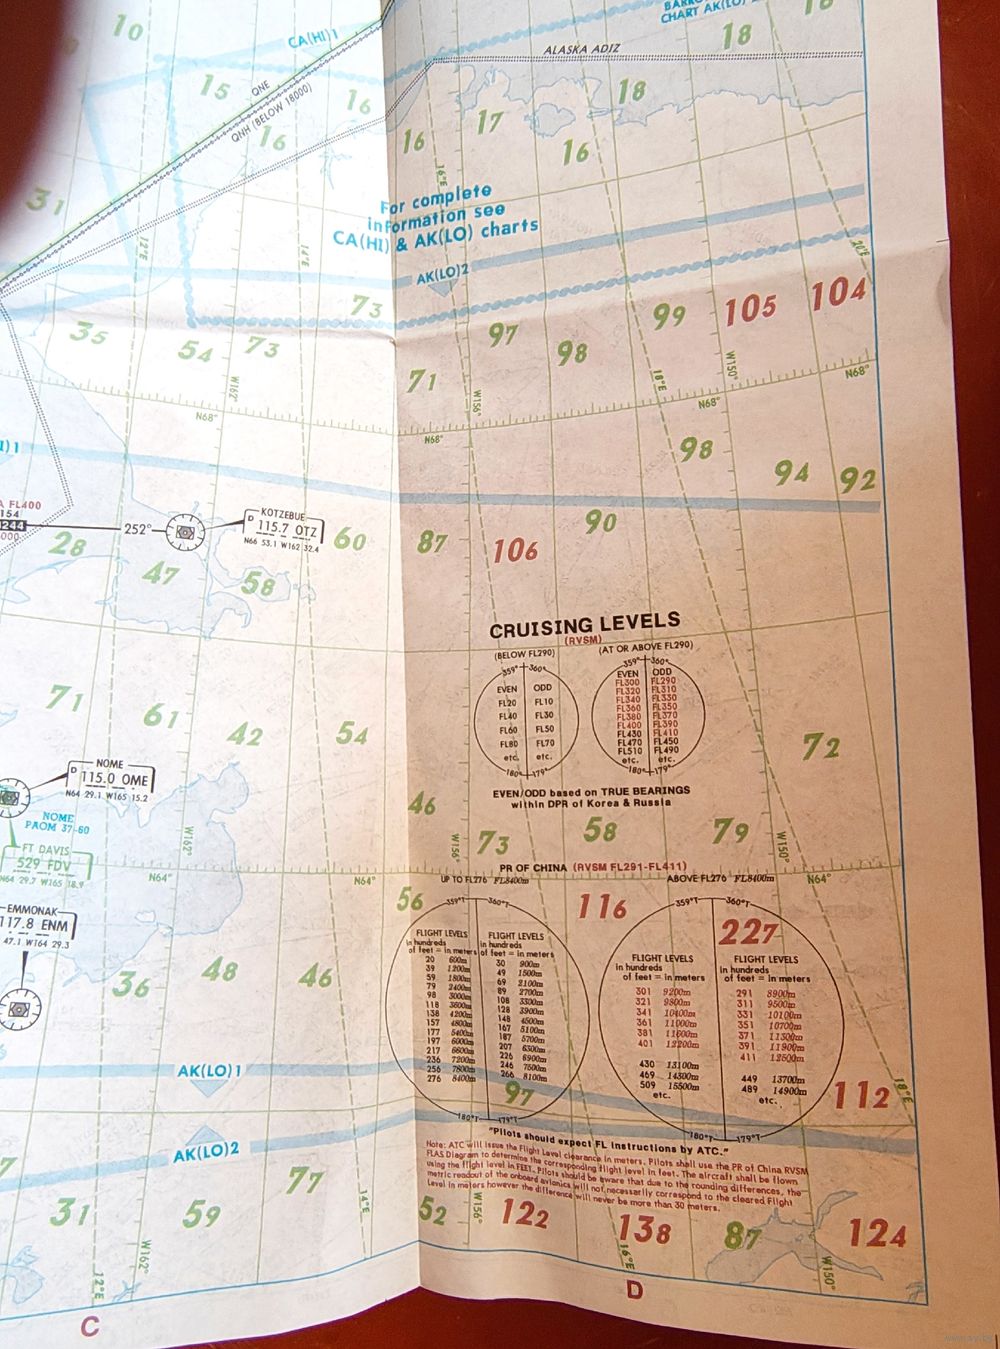 BARRO
CHART AK(LO)
10
CA(HI)1
18
18
ALASKA ADIZ
15
QNE
16
QNH (BELOW 18000)
16
16
17
18
16
31
16°E
12°E
14°E
For complete
information see
CA(HI) & AK(LO) charts
AK(LO)2
20°E
73
97
99
105
104
35
54
73
98
71
W162°
W156°
18°E
W150°
N68°
N68°
N68°
N68°
98
94
92
FL400
154
244
000
252°
KOTZEBUE
D 115.7 OTZ
N66 53.1 W162 32.4
28
47
58
60
87
106
90
CRUISING LEVELS
(RVSM)
(BELOW FL290)
(AT OR ABOVE FL290)
359° 360°
EVEN ODD
FL20 FL10
FL40 FL30
FL60 FL50
FL80 FL70
etc. etc.
180° 179°
359° 360°
EVEN ODD
FL300 FL290
FL320 FL310
FL340 FL330
FL360 FL350
FL380 FL370
FL400 FL390
FL430 FL410
FL470 FL450
FL510 FL490
etc. etc.
180° 179°
EVEN/ODD based on TRUE BEARINGS
within DPR of Korea & Russia
71
61
42
54
72
NOME
D 115.0 OME
N64 29.1 W165 15.2
NOME
PAOM 37-60
FT DAVIS
529 FDV
N64 29.7 W165 18.9
46
73
58
79
W162°
W156°
W150°
N64°
N64°
N64°
PR OF CHINA (RVSM FL291-FL411)
UP TO FL276 FL8400m
ABOVE FL276 FL8400m
56
116
227
EMMONAK
117.8 ENM
47.1 W164 29.3
359°T 360°T
FLIGHT LEVELS FLIGHT LEVELS
in hundreds in hundreds
of feet = in meters of feet = in meters
20 600m 30 900m
39 1200m 49 1500m
59 1800m 69 2100m
79 2400m 89 2700m
98 3000m 108 3300m
118 3600m 128 3900m
138 4200m 148 4500m
157 4800m 167 5100m
177 5400m 187 5700m
197 6000m 207 6300m
217 6600m 226 6900m
236 7200m 246 7500m
256 7800m 266 8100m
276 8400m
180°T 179°T
359°T 360°T
FLIGHT LEVELS FLIGHT LEVELS
in hundreds in hundreds
of feet = in meters of feet = in meters
301 9200m 291 8900m
321 9800m 311 9500m
341 10400m 331 10100m
361 11000m 351 10700m
381 11600m 371 11300m
401 12200m 391 11900m
411 12500m
430 13100m
469 14300m 449 13700m
509 15500m 489 14900m
etc. etc.
180°T 179°T
36
48
46
97
112
18°E
AK(LO)1
AK(LO)2
"Pilots should expect FL instructions by ATC."
Note: ATC will issue the Flight Level clearance in meters. Pilots shall use the PR of China RVSM
FLAS Diagram to determine the corresponding flight level in feet. The aircraft shall be flown
using the flight level in FEET. Pilots should be aware that due to the rounding differences, the
metric readout of the onboard avionics will not necessarily correspond to the cleared Flight
Level in meters however the difference will never be more than 30 meters.
7
77
31
59
14°E
52
W156°
122
138
87
124
W162°
12°E
16°E
W150°
C
D